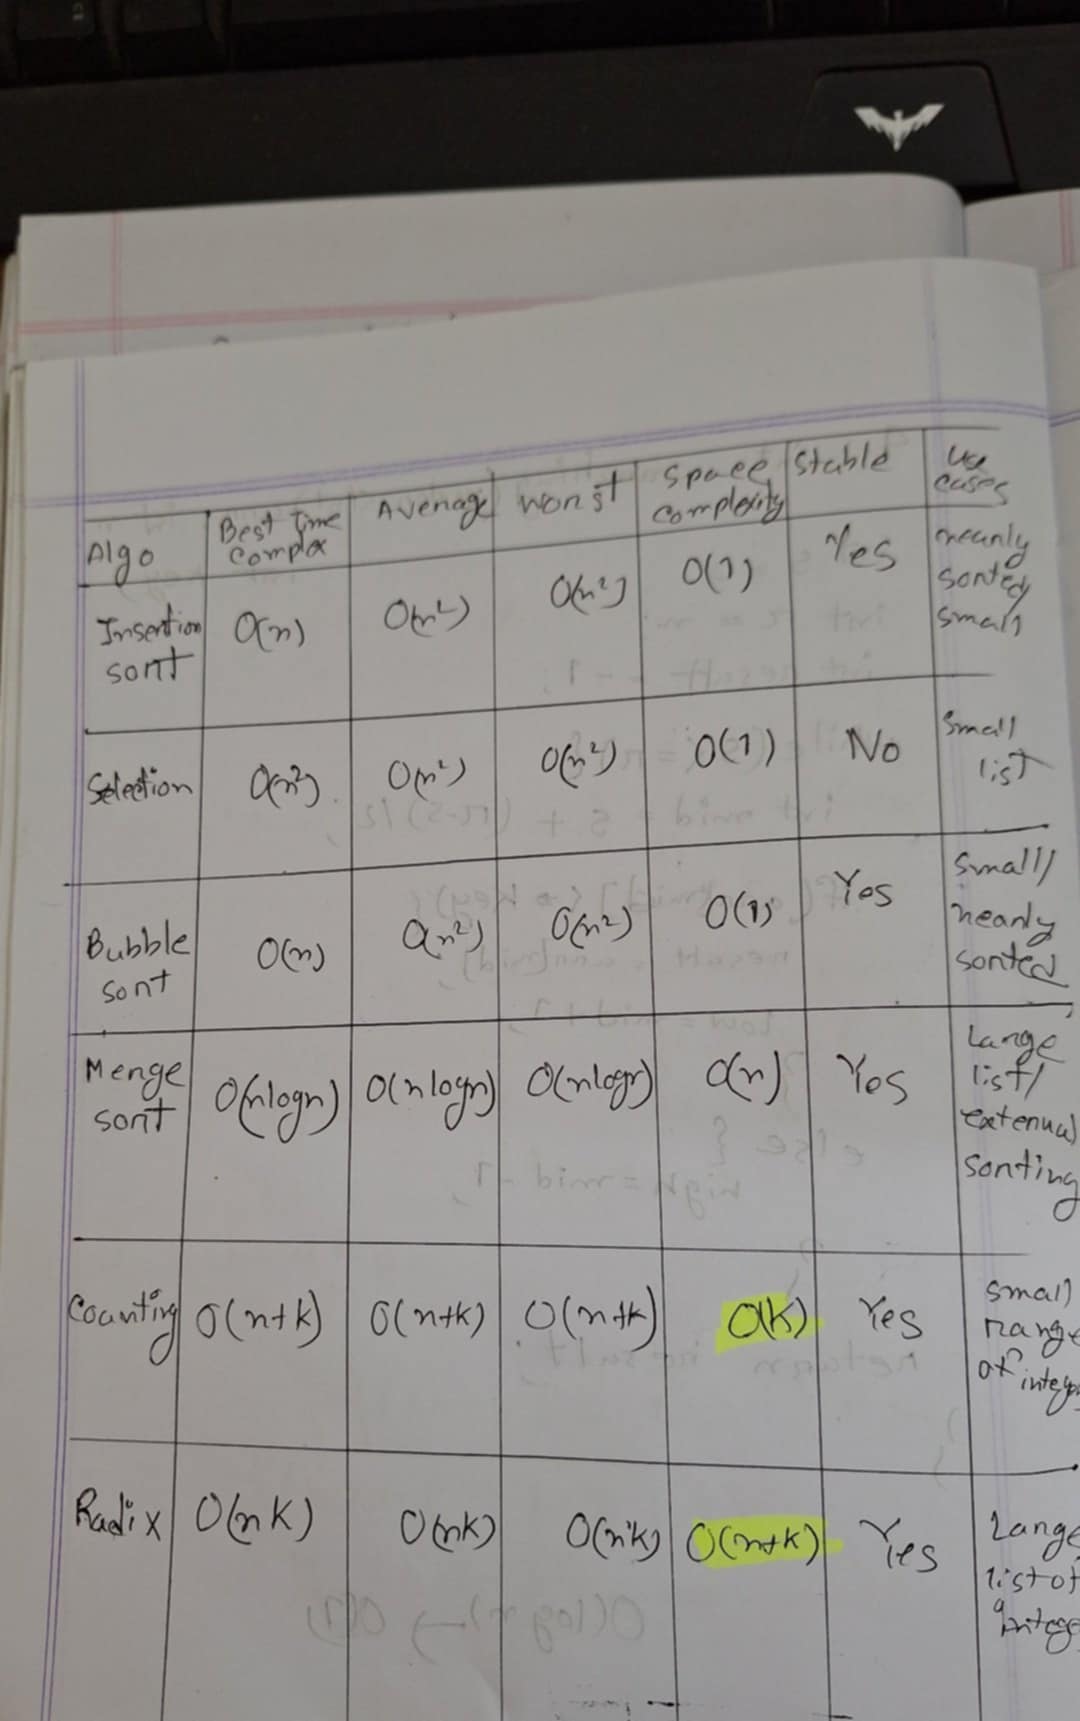 Algo | Best Time Complex | Average | Worst | Space complexity | Stable | Use cases
Insertion sort | O(n) | O(n²) | O(n²) | O(1) | Yes | nearly sorted, small
Selection | O(n²) | O(n²) | O(n²) | O(1) | No | Small list
Bubble sort | O(n) | O(n²) | O(n²) | O(1) | Yes | Small/ nearly sorted
Merge sort | O(nlogn) | O(nlogn) | O(nlogn) | O(n) | Yes | Large list/ external sorting
Counting | O(n+k) | O(n+k) | O(n+k) | O(k) | Yes | small range of
Radix | O(nk) | O(nk) | O(nk) | O(n+k) | Yes | Large list of